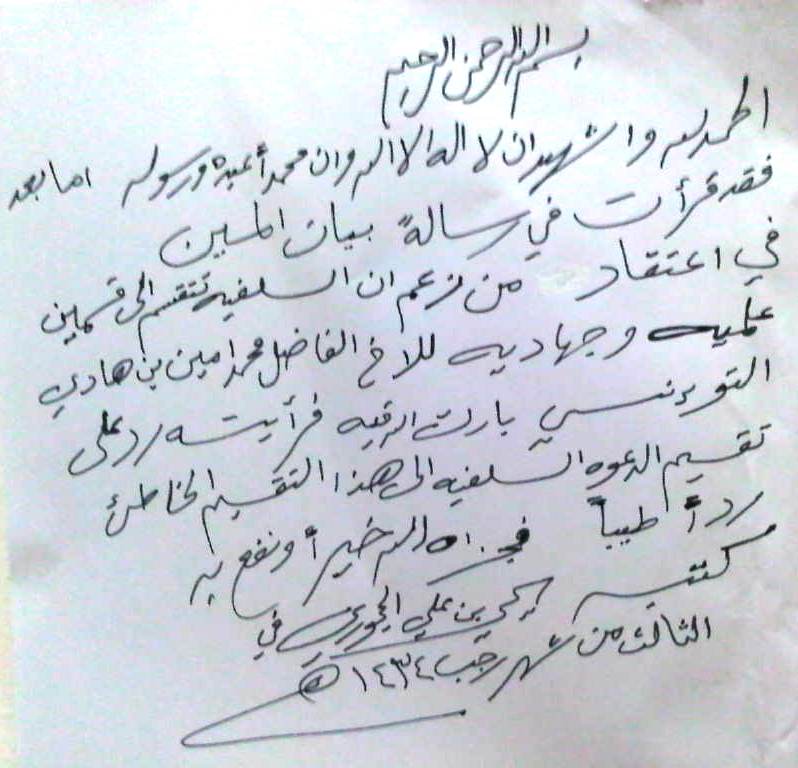 بسم الله الرحمن الرحيم
الحمد لله واشهد ان لا اله الا الله وان محمداً عبده ورسوله اما بعد
فقد قرأت في رسالة بيان المين
في اعتقاد من زعم ان السلفيه تنقسم الى قسمين
علميه وجهاديه للاخ الفاضل محمد امين بن هادي
التونسي بارك الله فيه فرأيته رد على
تقسيم الدعوه السلفيه الى هذا التقسيم الخاطئ
رداً طيباً فجزاه الله خيراً ونفع به
كتبه يحيى بن علي الحجوري في
الثالث من شهر رجب ١٤٣٤ ه